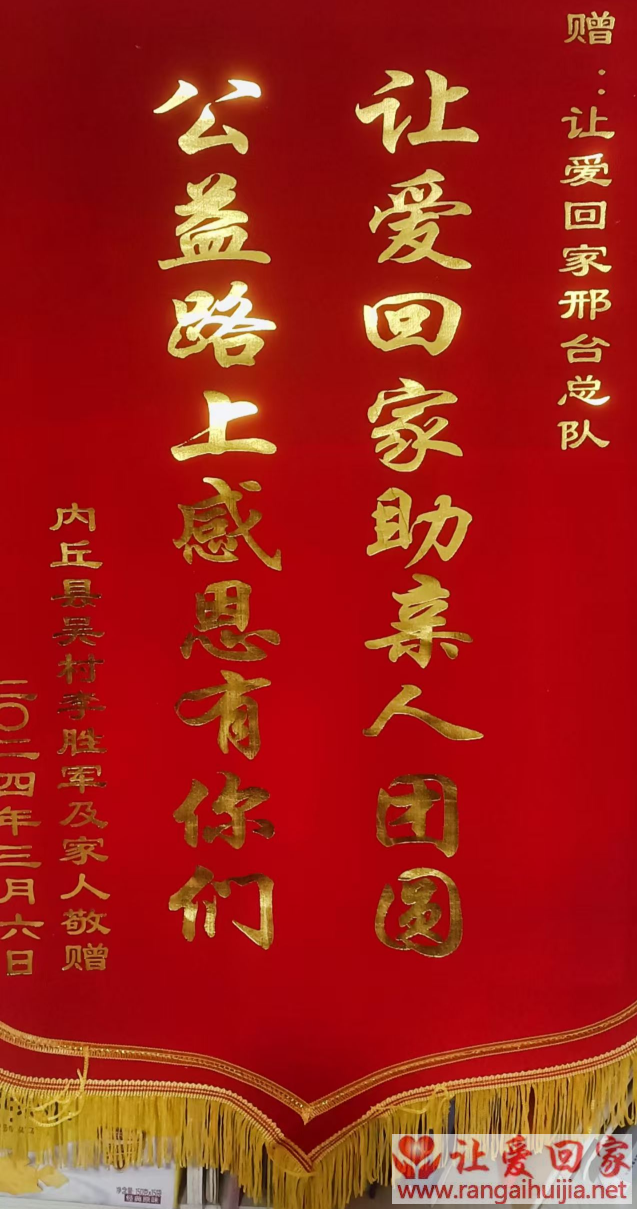 赠：让爱回家邢台总队
让爱回家助亲人团圆
公益路上感恩有你们
内丘县吴村李胜军及家人敬赠
二〇二四年三月六日
经典原味
让爱回家
www.rangaihuijia.net